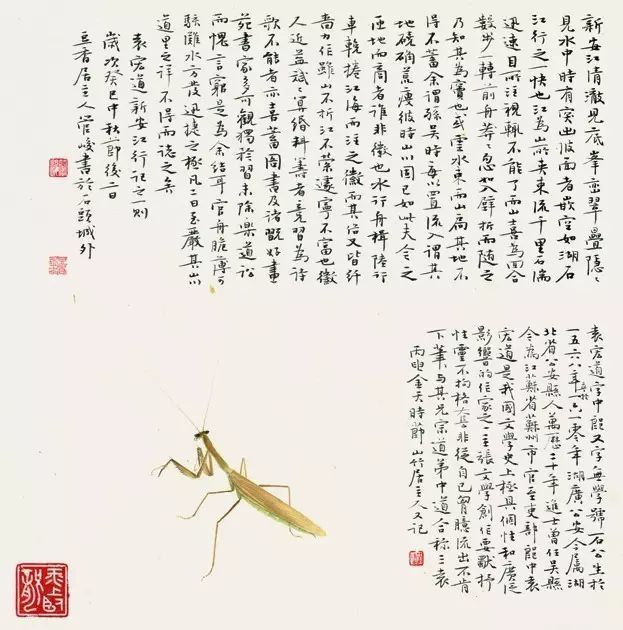 新安江清澈見底峯巒翠疊隱〻
見水中時有突出波面者嵌空如湖石
江行之一快也江為山所夾束流千里石湍
迅速目所注視輒不能了而山喜為回合
數步一轉前舟莽〻忽如入壁折而随之
乃知其為竇也或云水東而山高其地不
得不蓄余謂孫吴時每以置流人謂其
地硗确荒瘦彼時山川固已如此夫今之
匝地而商者誰非徽也水行舟楫陸行
車輓捲江海而注之徽而其俗又皆纤
嗇力作雖山不折江不縈遽寧不富也徽
人近益斌〻算緡料籌者竟習為詩
歌不能者亦喜蓄圖書及諸翫好畫
苑書家多可觀獨矜習未除樂道訟
而愧言窮是為余結耳官舟脆薄可
駭灘水方發迅捷之極凡二日至嚴其山川
道里之詳不得而誌之矣
袁宏道新安江行記之一則
歲次癸巳中秋節後二日
立香居主人管峻書於石頭城外
袁宏道字中郎又字無學號石公生於
一五六八年卒於一六一零年湖廣公安今属湖
北省公安縣人萬歷二十年進士曾任吴縣
令為江蘇省蘇州市官至吏部郎中袁
宏道是我國文學史上極具個性和廣泛
影響的作家之一主張文學創作要獨抒
性靈不拘格套非從自己胷臆流出不肯
下筆與其兄宗道弟中道合稱三袁
丙申金天時節山竹居主人又記